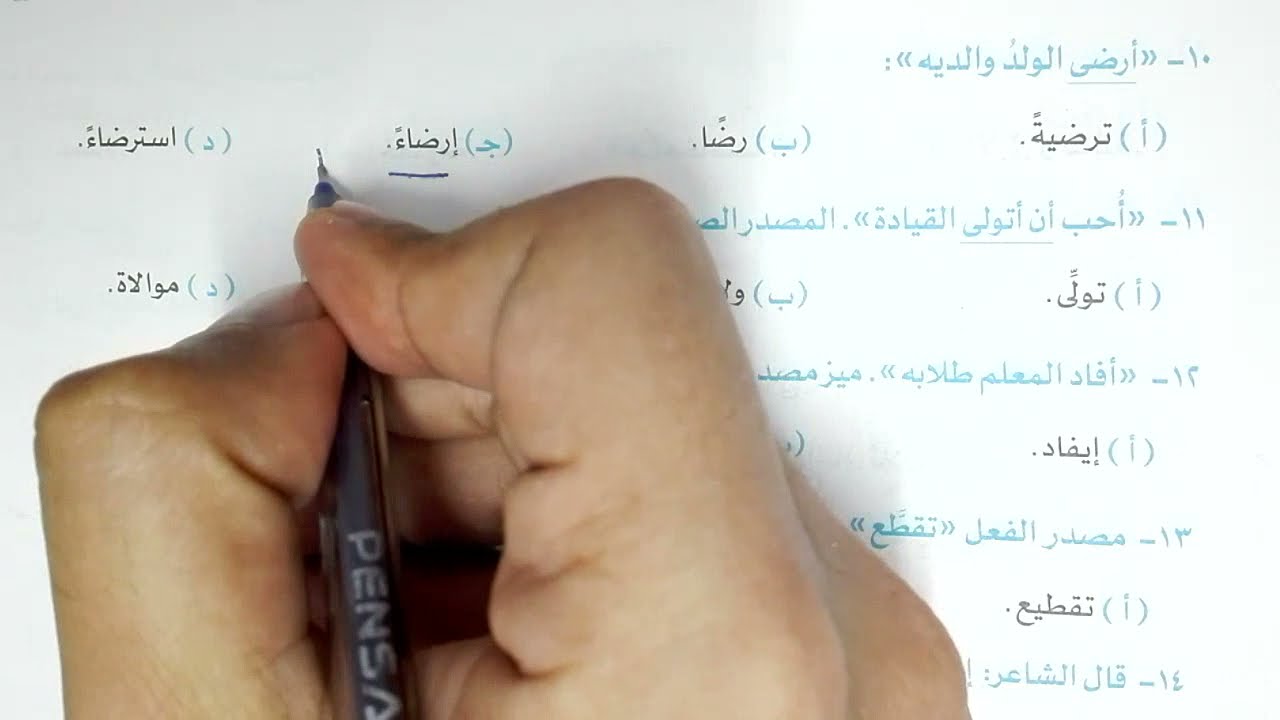 ١٠- «أرضى الولدُ والديه»:
( أ ) ترضيةً. (ب) رضًا. (جـ) إرضاءً. ( د ) استرضاءً.
١١- «أُحب أن أتولى القيادة». المصدر
( أ ) تولِّى. (ب) ( د ) موالاة.
١٢- «أفاد المعلم طلابه». ميز
( أ ) إيفاد.
١٣- مصدر الفعل «تقطَّع»
( أ ) تقطيع.
١٤- قال الشاعر:
PENSA